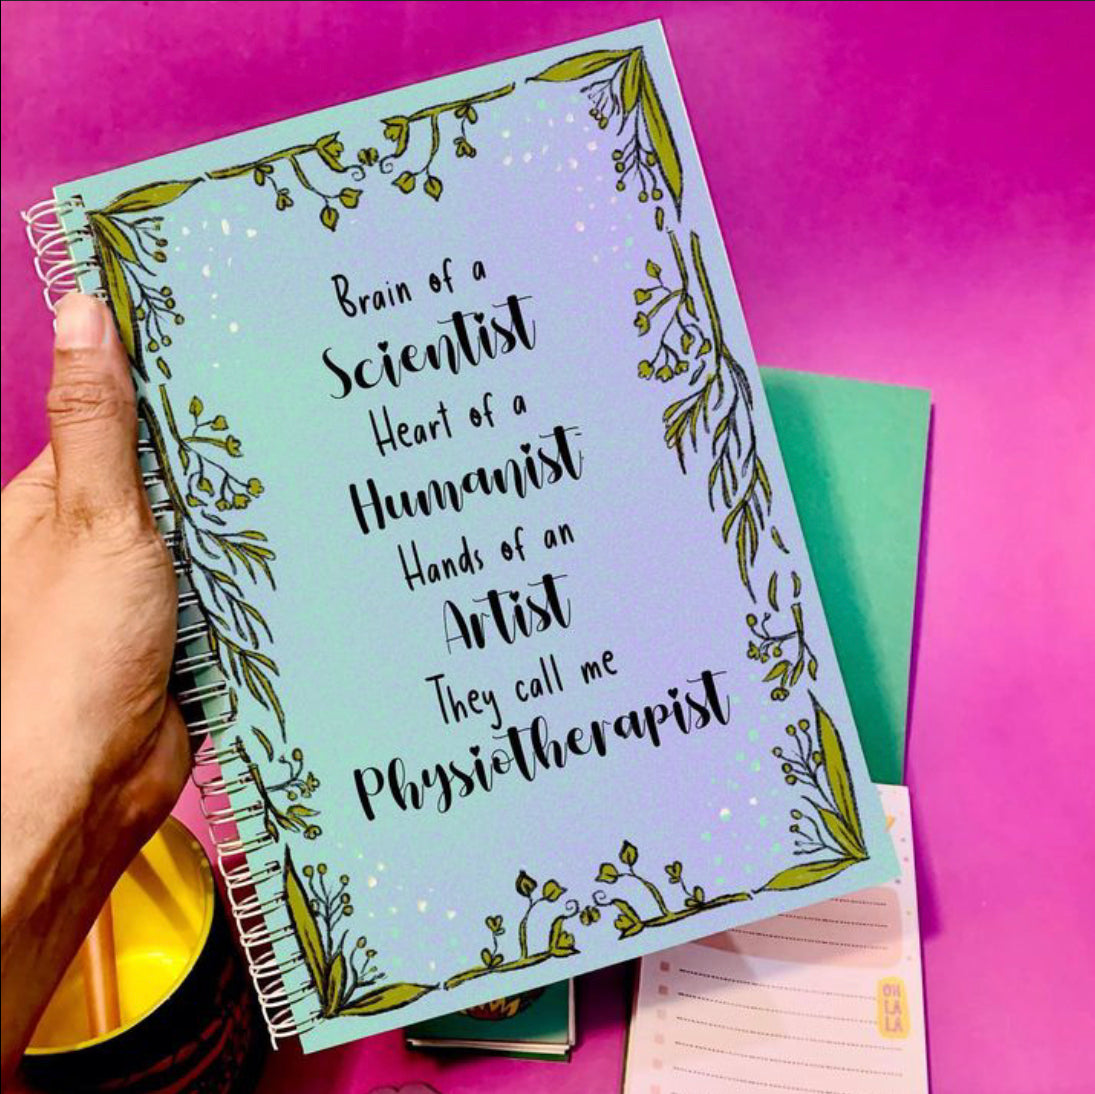 Brain of a
Scientist
Heart of a
Humanist
Hands of an
Artist
They call me
Physiotherapist
OH
LA
LA